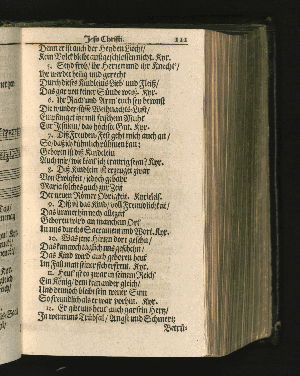 Jesu Christi. 111
Denn er ist auch der Heyden Liecht/
Kein Volck bleibt ausgeschlossen nicht. Kyr.
5. Seyd froh/ ihr Herren und ihr Knecht/
Ihr werdet heilig und gerecht
Durch dieses Kindleins Lieb und Fleiß/
Das gar von keiner Sünde weiß. Kyr.
6. Ihr Reich und Arm euch sey bewust
Die wundersüsse Weihnachts-Lust/
Empfanget wir mit frischem Muht
Das höchste Gut. Kyr.
7. Diß Freuden-Fest geht mich auch an/
So/ daß ich kühnlich rühmen kan:
Geboren ist das Kindelein
Auch mir/ wie könt ich traurig seyn? Kyr.
8. Diß Kindlein Herzeuget zwar
Von Ewigkeit/ jedoch gebahr
Maria solches auch zur Zeit
Der neuen Römer Obrigkeit. Kyrieleis.
9. Diß ist das Kind/ voll Freundlichkeit/
Das immer hin noch allezeit
Geboren wird an manchem Ort
In uns durchs Sacrament und Wort. Kyr.
10. Was jene Hirten dort geschn/
Das kan noch täglich uns geschehn/
Das Kind wird auch geboren heut
Im Fall man seiner sich erfreut. Kyr.
11. Heut' ist es zwar in seinem Reich
Ein König/ dem kein ander gleich/
Und dennoch bleibt sein treuer Sinn
So freundlich als er war vorhin. Kyr.
12. Er giebt uns heut auch gar sein Hertz/
In wenn uns Trübsal/ Angst und Schmertz
Betrü-